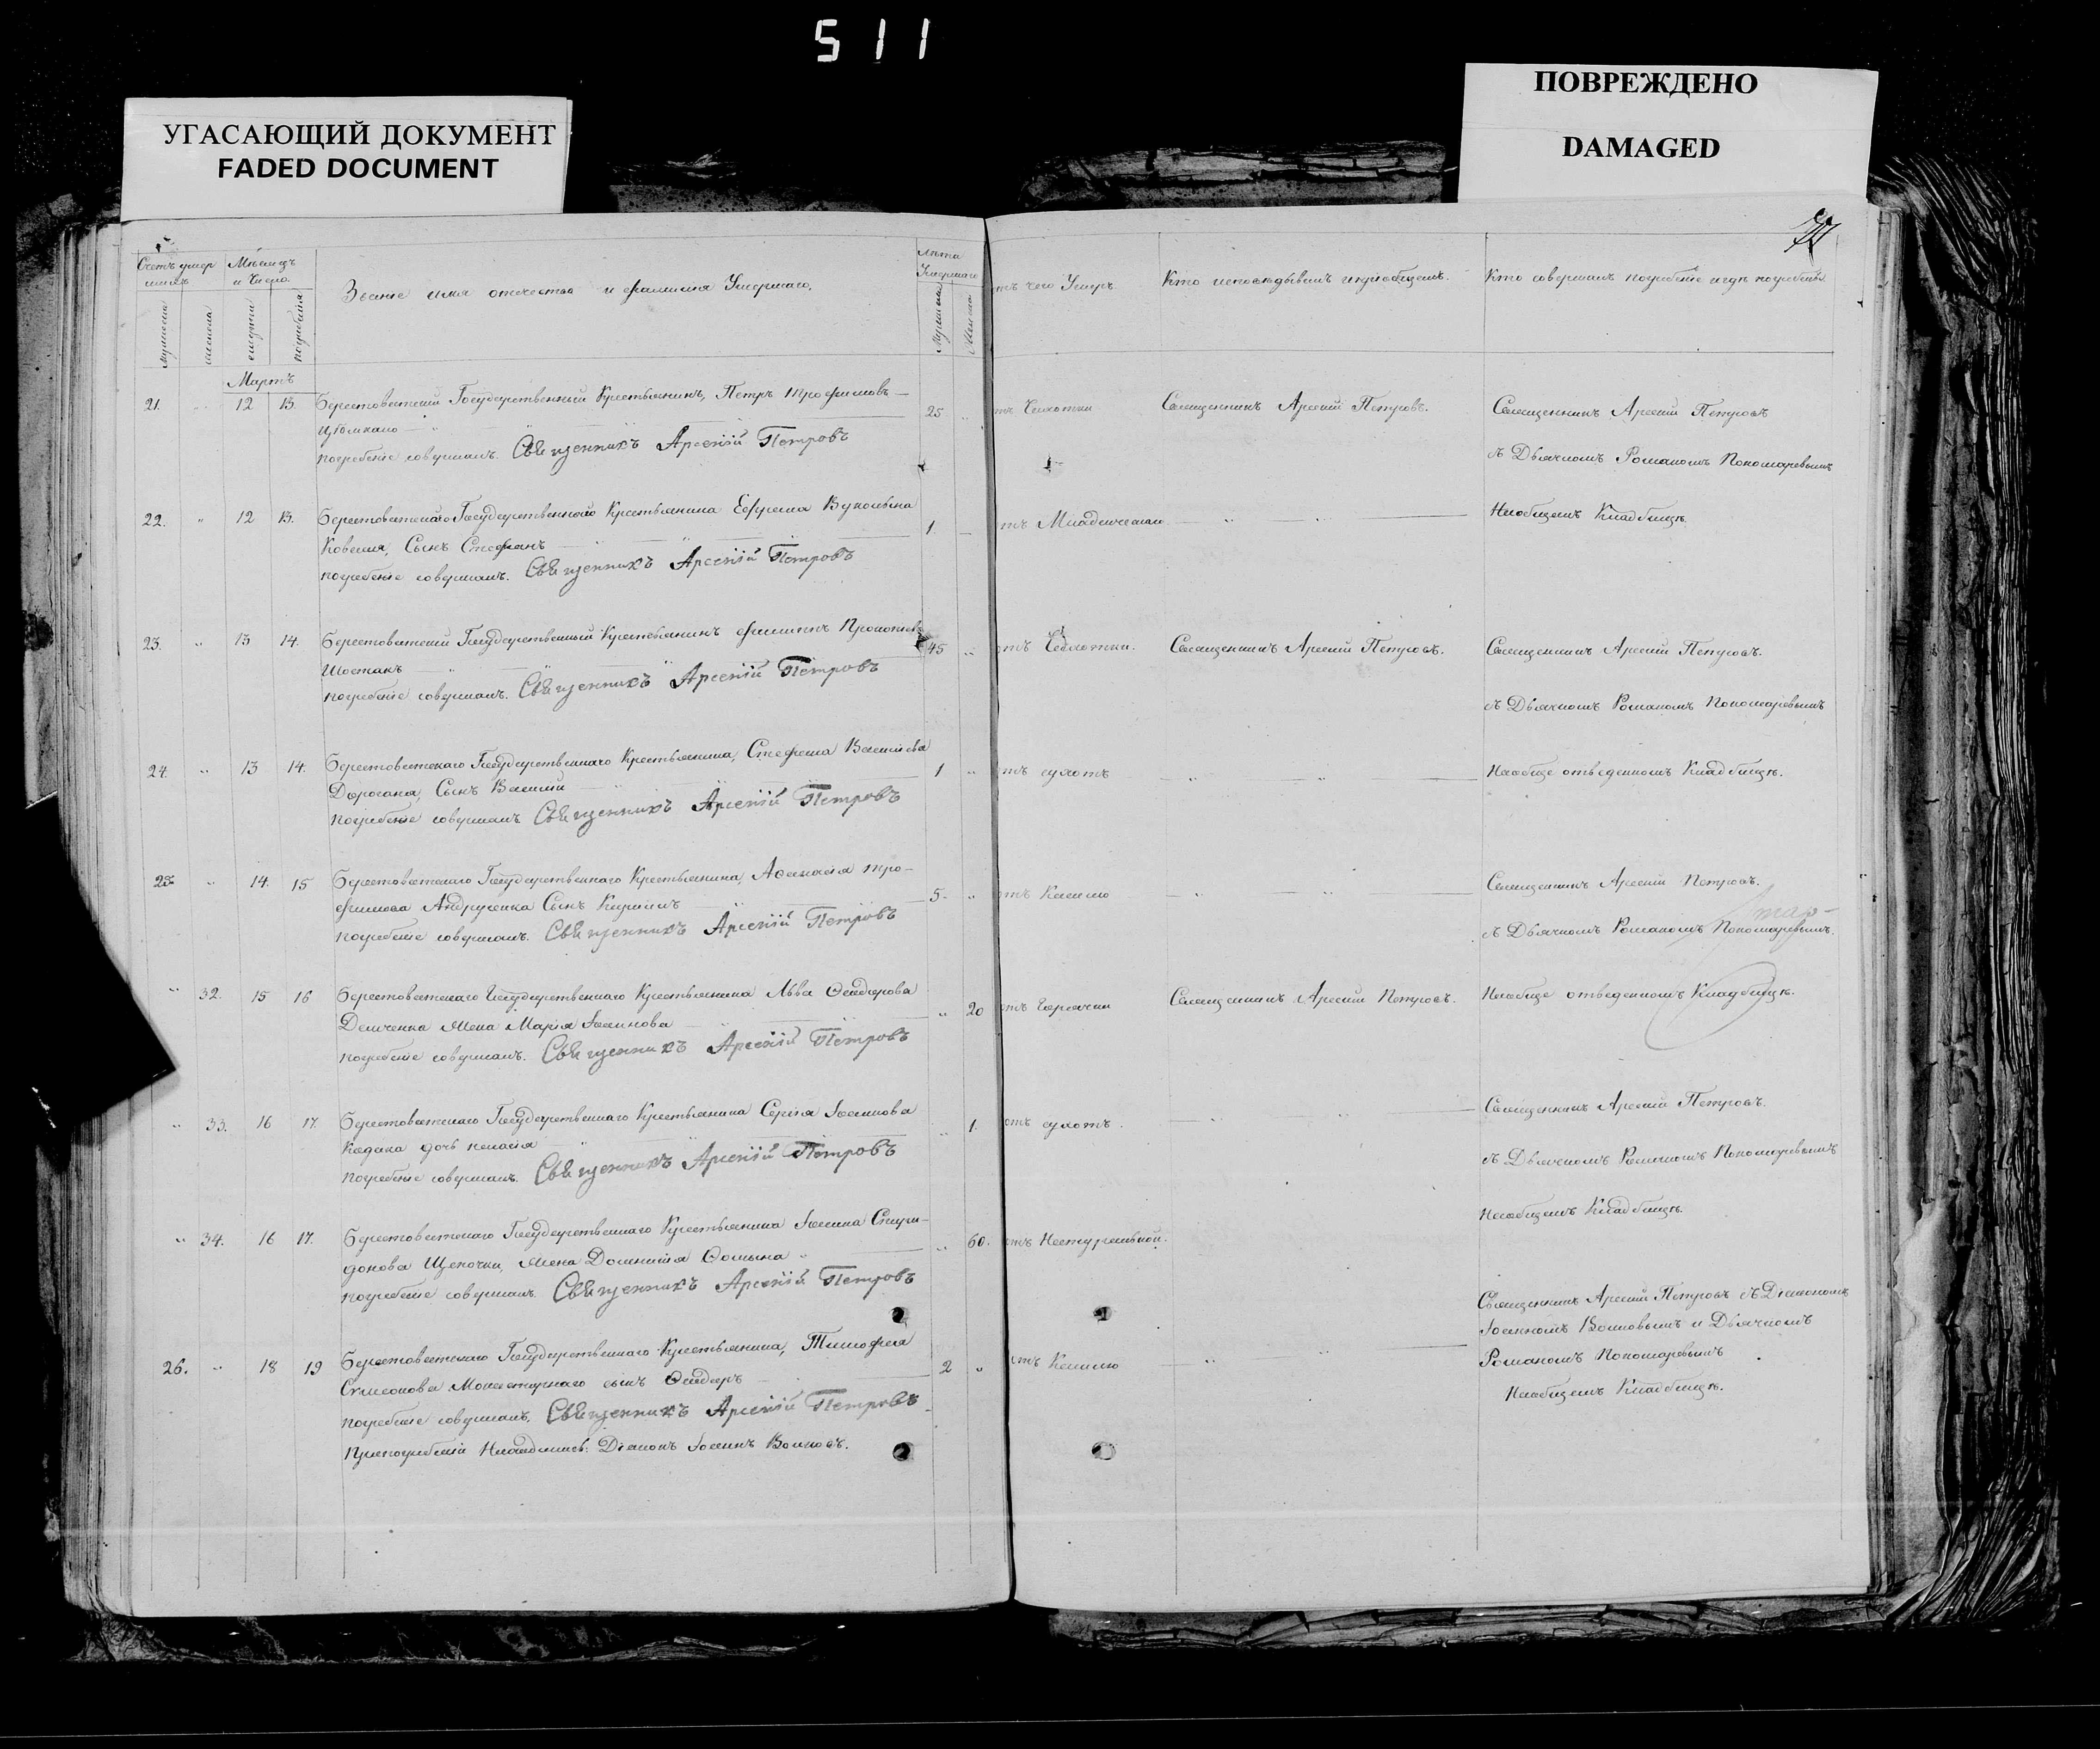 511
УГАСАЮЩИЙ ДОКУМЕНТ
FADED DOCUMENT
ПОВРЕЖДЕНО
DAMAGED
Счетъ умер
шихъ
Мѣсяцъ
и Число.
Званіе имя отечество и фамилія Умершаго.
лѣта
Умершаго
мужеска
женска
смерти
погребенія
Мужеска
Женска
тъ чего Умеръ.
Кто исповѣдывалъ и пріобщалъ.
Кто совершалъ погребеніе и гдѣ погребены
Мартъ
21. " 12 13. Берестоватскій Государственный Крестьянинъ, Петръ Трофимовъ —
25 " тъ Чихотки Священникъ Арсеній Петровъ. Священникъ Арсеній Петровъ
погребеніе совершалъ. Священникъ Арсеній Петровъ
съ Дьячкомъ Романомъ Пономаревымъ
22. " 12 13. Берестоватскаго Государственнаго Крестьянина Ефрема
1 — тъ Младенческаго — " — " — На общемъ Кладбищѣ.
Сынъ Стефанъ
погребеніе совершалъ. Священникъ Арсеній Петровъ
23. " 13 14. Берестоватскій Государственный Крестьянинъ Филиппъ
45 " отъ Священникъ Арсеній Петровъ. Священникъ Арсеній Петровъ.
Шостакъ
погребеніе совершалъ. Священникъ Арсеній Петровъ
съ Дьячкомъ Романомъ Пономаревымъ
24. " 13 14. Берестоватскаго Государственнаго Крестьянина, Стефана Васильева
1 " тъ сухотъ " " — На обще отведенномъ Кладбищѣ.
Сынъ Василій
погребеніе совершалъ Священникъ Арсеній Петровъ
25. " 14. 15 Берестоватскаго Государственнаго Крестьянина, Афанасія Тро-
фимова Андрусенка Сынъ Кирилъ
5. " тъ Кашлю — " — " — Священникъ Арсеній Петровъ.
погребеніе совершалъ. Священникъ Арсеній Петровъ
съ Дьячкомъ Романомъ Пономаревымъ.
" 32. 15 16 Берестоватскаго Государственнаго Крестьянина Льва Ѳеодорова
" 20 отъ Горячки Священникъ Арсеній Петровъ. На обще отведенномъ Кладбищѣ.
Демченка Жена Марія Іоаннова
погребеніе совершалъ. Священникъ Арсеній Петровъ
" 33. 16 17. Берестоватскаго Государственнаго Крестьянина Сергія Іоаннова
" 1. отъ сухотъ. — " " — Священникъ Арсеній Петровъ.
дочь
погребеніе совершалъ. Священникъ Арсеній Петровъ
съ Дьячкомъ Романомъ Пономаревымъ
На общемъ Кладбищѣ.
" 34. 16 17. Берестоватскаго Государственнаго Крестьянина Іоанна Спири-
донова Щепочки, Жена Домникія Ѳомина "
" 60. отъ Натуральной.
погребеніе совершалъ. Священникъ Арсеній Петровъ
26. " 18 19 Берестоватскаго Государственнаго Крестьянина, Тимофея
Симеонова Монастырнаго сынъ Ѳеодоръ
2 " отъ Кашлю " "
Священникъ Арсеній Петровъ съ Діакономъ
Іоанномъ Волковымъ и Дьячкомъ
Романомъ Пономаревымъ
На общемъ Кладбищѣ.
погребеніе совершалъ. Священникъ Арсеній Петровъ
При погребеніи Находились: Діаконъ Іоаннъ Волковъ.